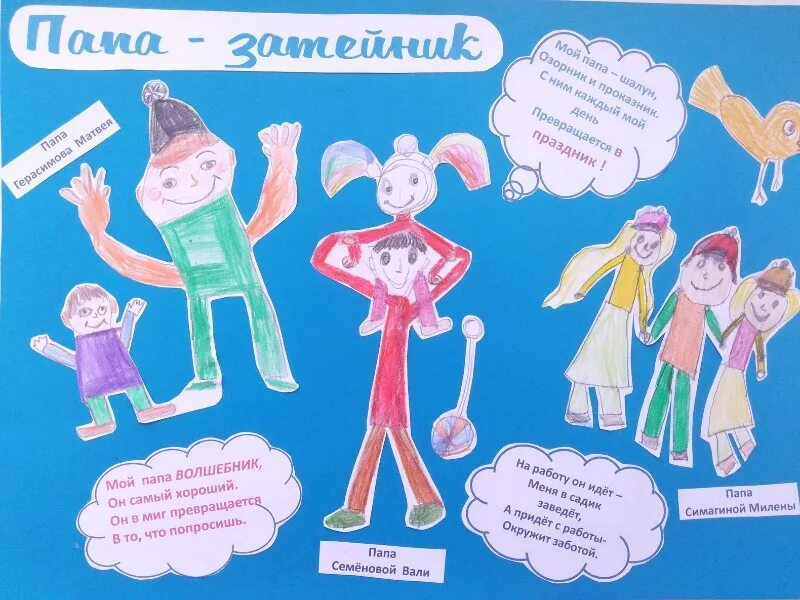 Папа - затейник
Папа
Герасимова Матвея
Мой папа – шалун,
Озорник и проказник.
С ним каждый мой
день
Превращается в
праздник !
Мой папа ВОЛШЕБНИК,
Он самый хороший.
Он в миг превращается
В то, что попросишь.
Папа
Семёновой Вали
На работу он идёт –
Меня в садик
заведёт,
А придёт с работы-
Окружит заботой.
Папа
Симагиной Милены